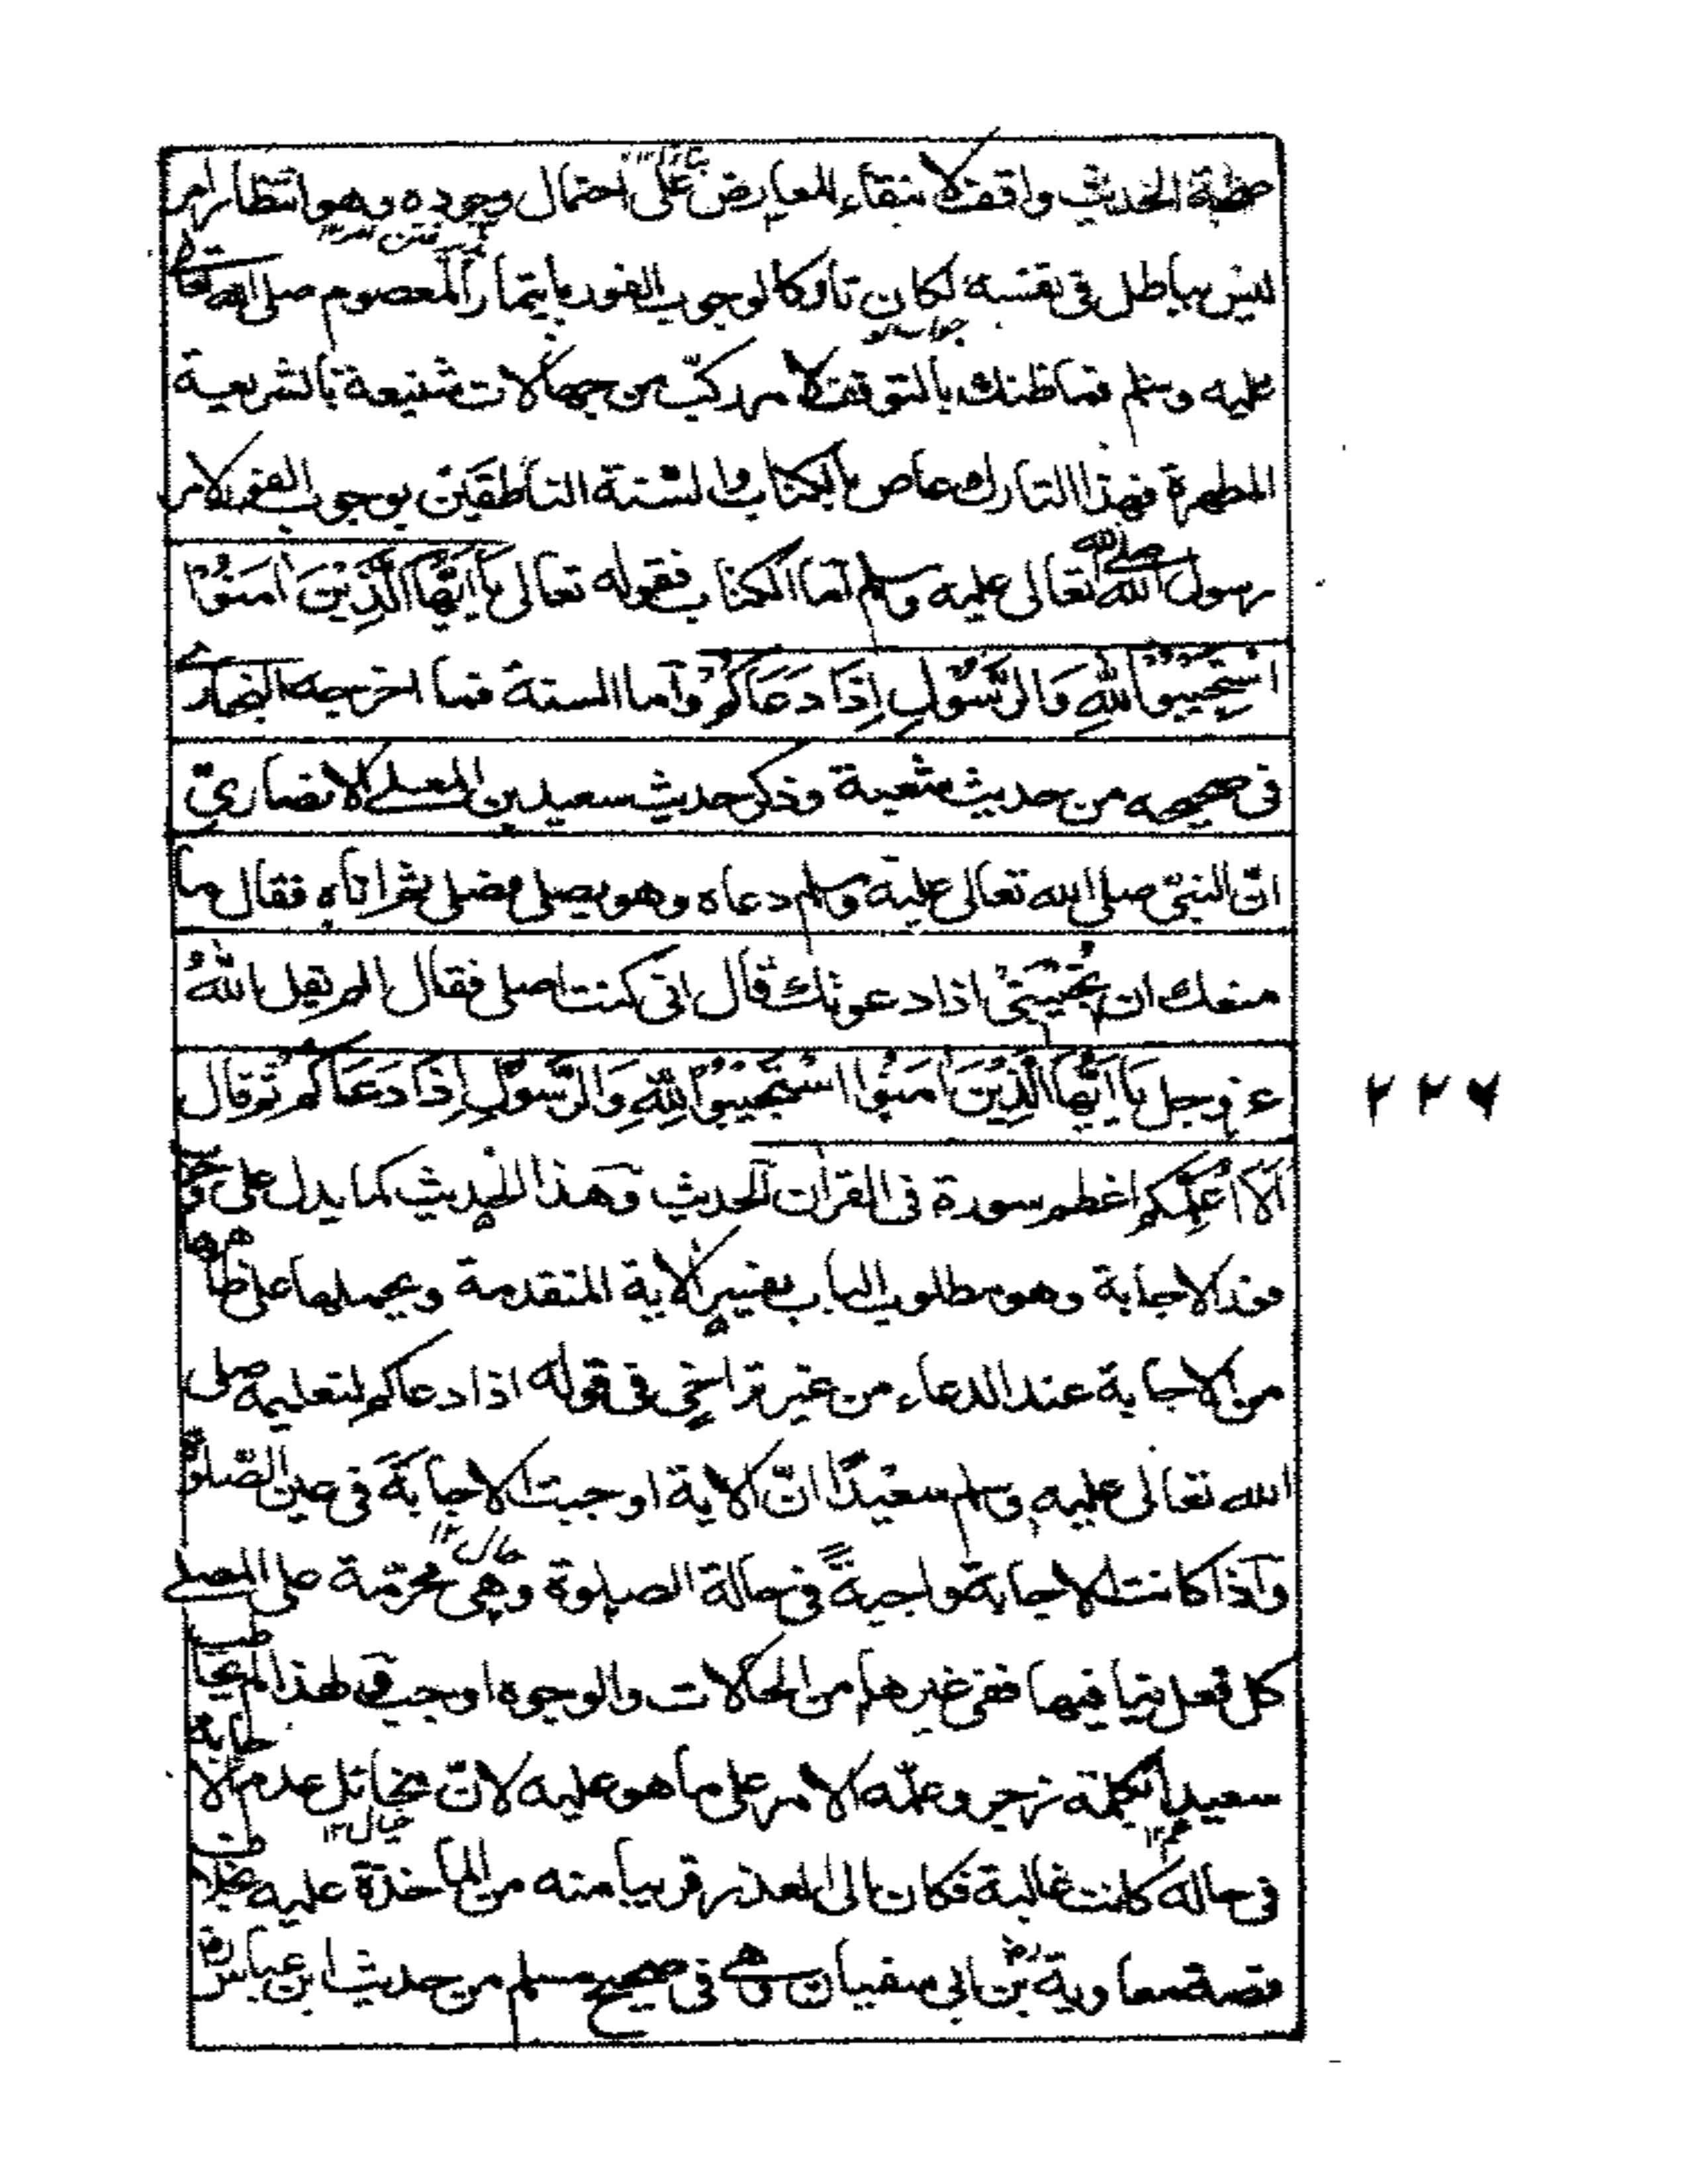 الحديث واقف لانتفاء المعارض على احتمال وجوده وهو انتظار امر
ليس بباطل في نفسه لكان تاركا لوجوب الفور بايتمار المعصوم صلى الله تعالى
عليه وسلم فما ظنك بالتوقف لامر ركب من جهالات شنيعة بالشريعة
المطهرة فهذا التارك عاص بالكتاب والسنة الناطقين بوجوب الفور لامر
رسول الله صلى الله تعالى عليه وسلم اما الكتاب فقوله تعالى يَا اَيُّهَا الَّذِيْنَ اٰمَنُوْا
اسْتَجِيْبُوْا لِلّٰهِ وَالرَّسُوْلِ اِذَا دَعَاكُمْ وأما السنة فما اخرجه البخاري
في صحيحه من حديث شعبة وذكر حديث سعيد بن المعلى الانصاريّ
انّ النبيّ صلى الله تعالى عليه وسلم دعاه وهو يصلي فصلى ثم اتاه فقال ما
منعك ان تُجِيْبَنِيْ اذا دعوتك قال اني كنت اصلي فقال الم يقل اللهُ
عز وجل يَا اَيُّهَا الَّذِيْنَ اٰمَنُوا اسْتَجِيْبُوْا لِلّٰهِ وَالرَّسُوْلِ اِذَا دَعَاكُمْ ثم قال
اَلَا اُعَلِّمُكُمْ اعظم سورة في القراٰن الحديث وهٰذا الحديث كما يدل على
فور الاجابة وهو مطلوب الباب يفسر الاية المتقدمة ويحملها على ظاهرها
من الاجابة عند الدعاء من غير تراخي في قوله اذا دعاكم لتعليمه صلى
الله تعالى عليه وسلم سعيدًا انّ الاية اوجبت الاجابةَ في عين الصّلوة
وآذا كانت الاجابة واجبةً في حالة الصلوة وهي محرّمة على المصلي
حال ١٢
كل فعل فيها ففي غيرها من الحالات والوجوه اوجب لهذا
سعيدا بكلمة زجر وعلّمه الامر على ما هو عليه لانّ عدم الاجابة
خيال ١٢
في حاله كانت غالبة فكان الى العذر قريبا منه من المأخذة عليه بخلاف
قصة معاوية رض بن ابي سفيان وهي في صحيح مسلم من حديث ابن عباس رض
٢٢٧